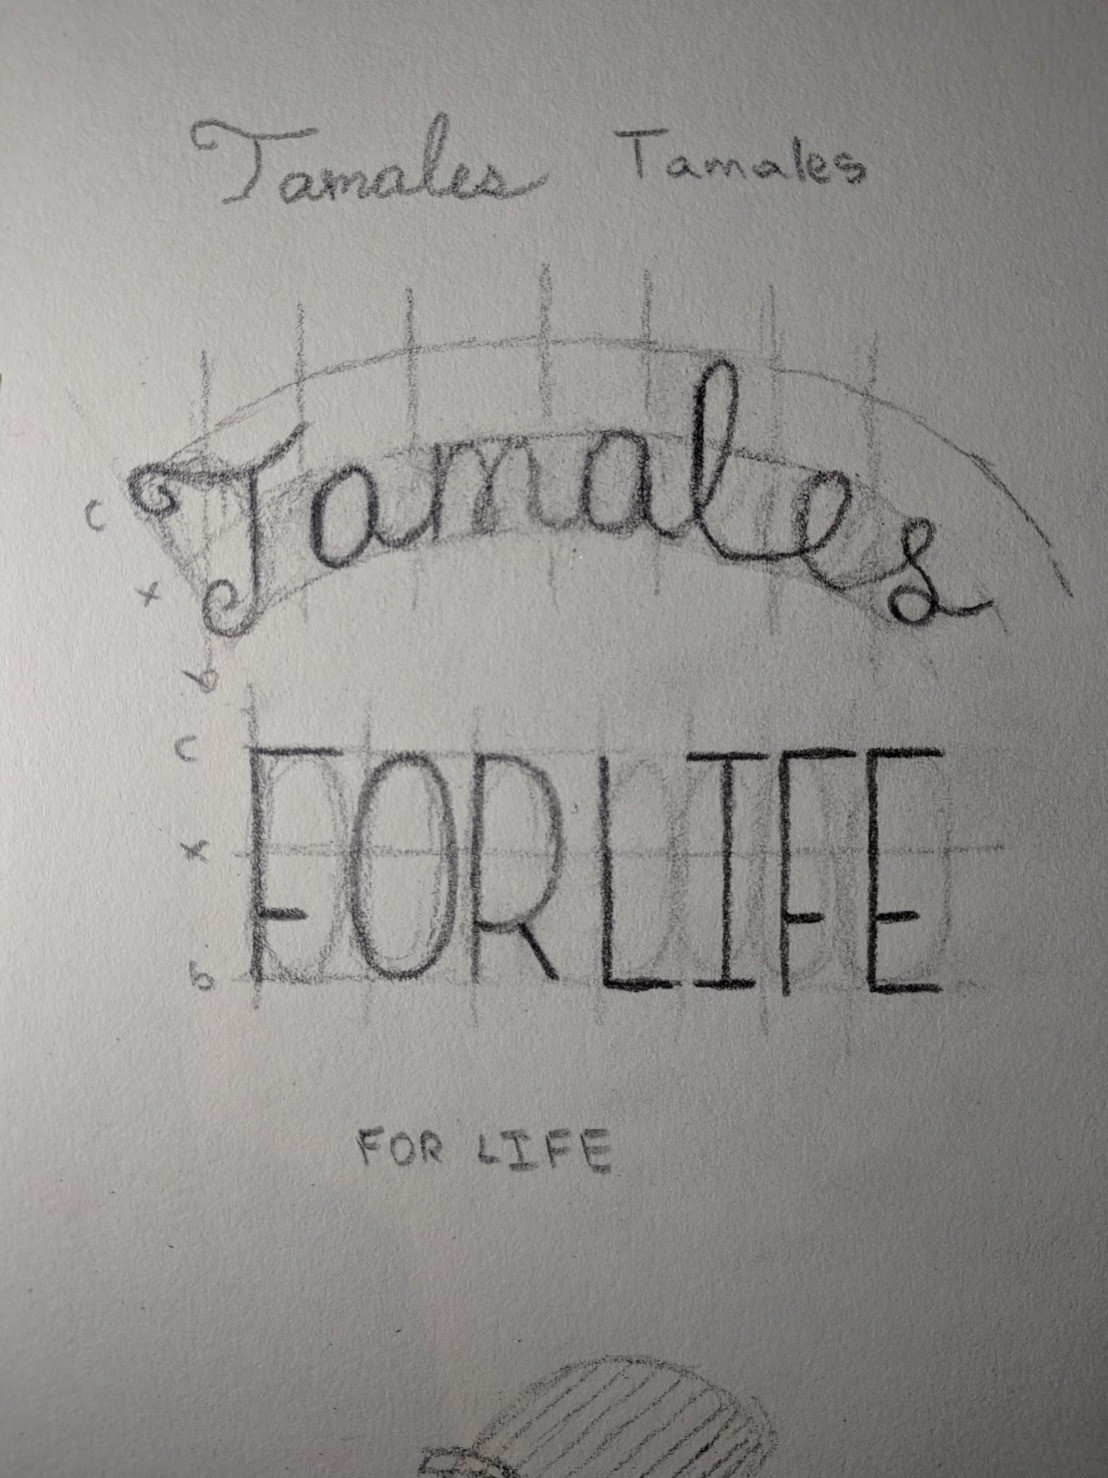 Tamales Tamales
Tamales
c
x
b
c
FOR LIFE
x
b
FOR LIFE